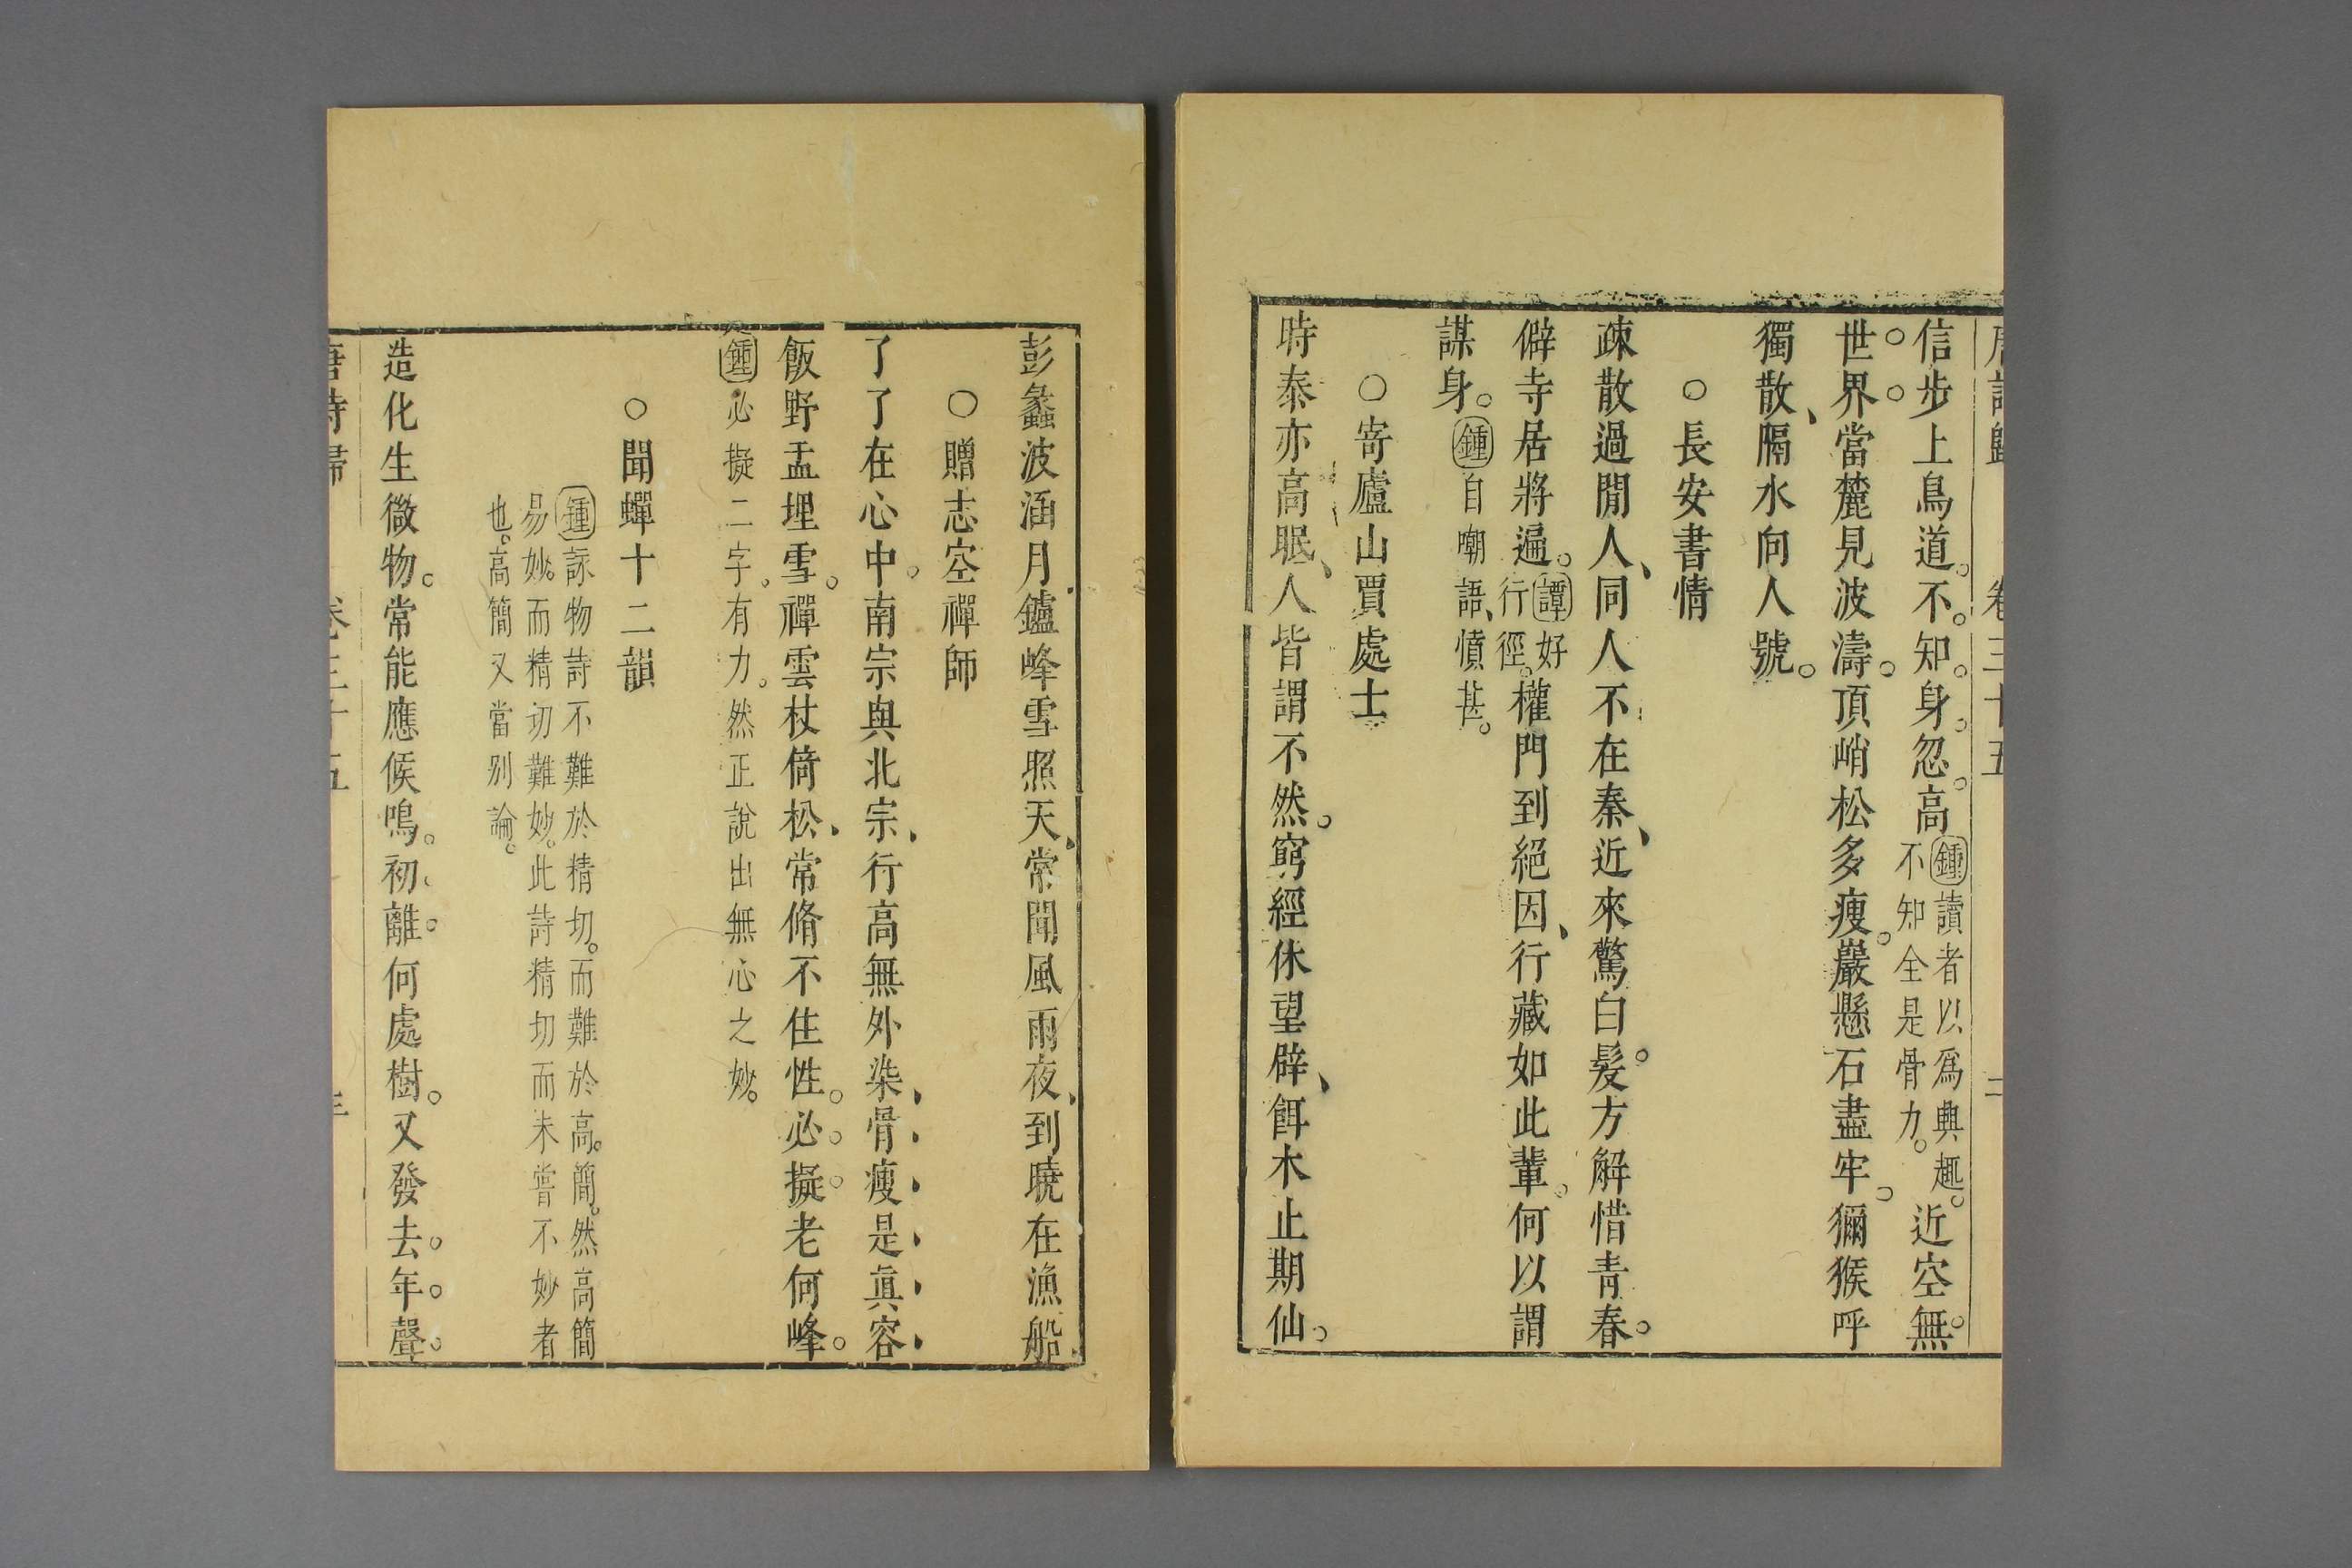 唐詩歸 卷三十五 二
信步上鳥道不知身忽高鍾讀者以爲興趣不知全是骨力近空無
世界當麓見波濤頂峭松多瘦巖懸石盡牢獼猴呼
獨散隔水向人號
○長安書情
疎散過閒人同人不在秦近來驚白髮方解惜青春
僻寺居將遍譚好行徑權門到絕因行藏如此輩何以謂
謀身鍾自嘲語憤甚
○寄廬山賈處士
時泰亦高眠人皆謂不然窮經休望辟餌木止期仙
彭蠡波涵月鑪峰雪照天常聞風雨夜到曉在漁船
○贈志空禪師
了了在心中南宗與北宗行高無外染骨瘦是眞容
飯野盂埋雪禪雲杖倚松常脩不住性必擬老何峰
鍾必擬二字有力然正說出無心之妙
○聞蟬十二韻
鍾詠物詩不難於精切而難於高簡然高簡
易妙而精切難妙此詩精切而未嘗不妙者
也高簡又當別論
造化生微物常能應候鳴初離何處樹又發去年聲
唐詩歸 卷三十五